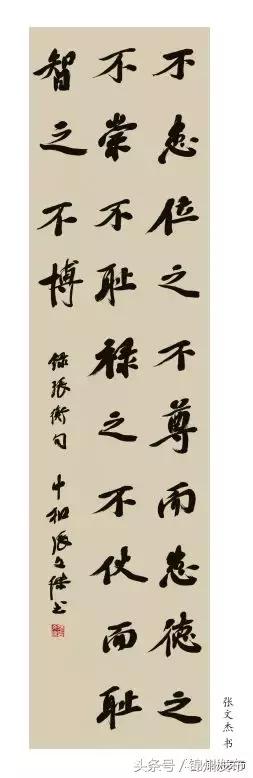 不患位之不尊而患德之
不崇不耻禄之不伙而耻
智之不博
録张衡句 中和张文傑书
张文杰 书
头条号 /